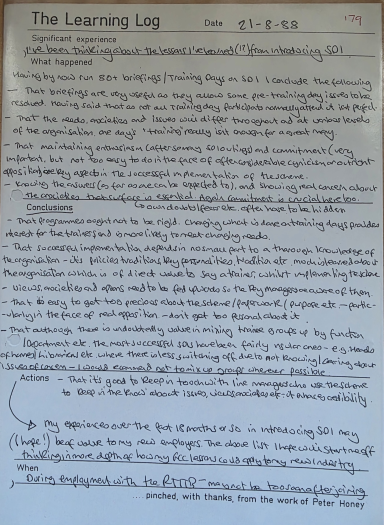 The Learning Log
Date 21-8-88
'79
Significant experience
I've been thinking about the lessons I've learned (!?) from introducing SDI
What happened
Having by now run 50+ briefings/Training Days on SDI I conclude the following
- That briefings are very useful as they allow some pre-training day issues to be
resolved. Having said that as not all training day participants normally attend it isn't perfect.
- That the needs, anxieties and issues will differ throughout and at various levels
of the organisation, one day's 'training' really isn't enough for a great many.
- That maintaining enthusiasm (after some 50 outings) and commitment (very
important, but not too easy to do in the face of often considerable cynicism or outright
opposition) are key aspects in the successful implementation of the scheme.
- Knowing the answers (as far as one can be expected to), and showing real concern about
the anxieties that surface is essential. Again commitment is crucial here too.
Conclusions
own doubts/fears etc. often have to be hidden
- That programmes ought not to be rigid. Changing what is done on training days provides
interest for the trainers and is more likely to meet changing needs.
- That successful implementation depends in no small part to a thorough knowledge of
the organisation - its policies, traditions, key personalities, tradition etc. much is learned about
the organisation which is of direct value to say a trainer, whilst implementing the scheme
- Views, anxieties and opinions need to be fed upwards so the key managers are aware of them.
- That it's easy to get too precious about the scheme/paperwork/purpose etc. - partic-
-ularly in the face of real opposition - don't get too personal about it
- That although there is undoubtedly value in mixing trainee groups up by function
/department etc. the most successful days have been fairly insular ones - e.g. Heads
of homes/domestics etc where there is less switching off due to not knowing/caring about
issues of concern - I would recommend not to mix up groups wherever possible
Actions
- That it's good to keep in touch with line managers who use the scheme
to keep in the know about issues, views, anxieties etc. it enhances credibility.
My experiences over the past 18 months or so in introducing SDI may
(I hope!) be of value to my new employers. The above list I hope will start me off
thinking in more depth of how my FCC lessons could apply to my new industry
When
During employment with the - may not be too soon after joining
...pinched, with thanks, from the work of Peter Honey